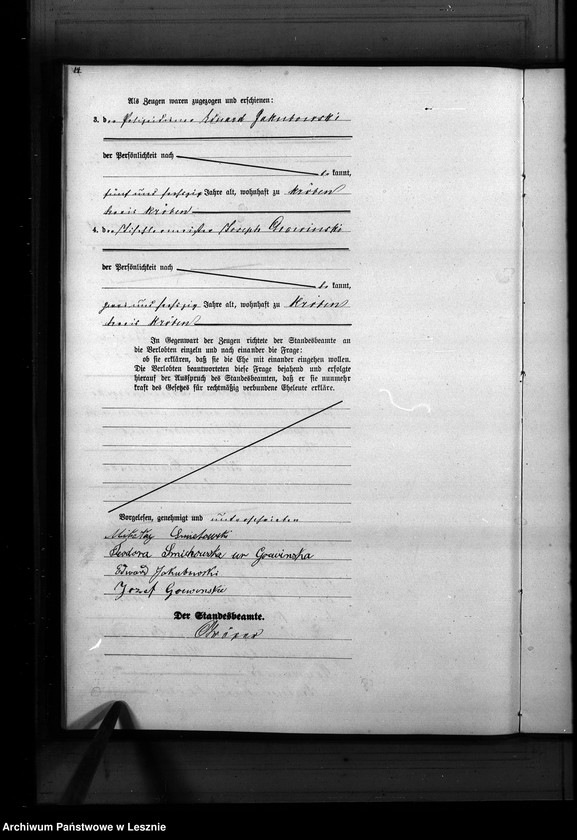 Als Zeugen waren zugezogen und erschienen:
3. der Polizeidiener Eduard Jakubowski
der Persönlichkeit nach
be kannt,
fünf und sechszig Jahre alt, wohnhaft zu Kröben
Kreis Kröben
4. der Tischlermeister Joseph Gowinski
der Persönlichkeit nach
be kannt,
zwei und sechszig Jahre alt, wohnhaft zu Kröben
Kreis Kröben
In Gegenwart der Zeugen richtete der Standesbeamte an
die Verlobten einzeln und nach einander die Frage:
ob sie erklären, daß sie die Ehe mit einander eingehen wollen.
Die Verlobten beantworteten diese Frage bejahend und erfolgte
hierauf der Ausspruch des Standesbeamten, daß er sie nunmehr
kraft des Gesetzes für rechtmäßig verbundene Eheleute erkläre.
Vorgelesen, genehmigt und unterschrieben
Mikołaj
Teodora ur Gowinska
Edward Jakubowski
Jozef Gowinski
Der Standesbeamte.
Archiwum Państwowe w Lesznie